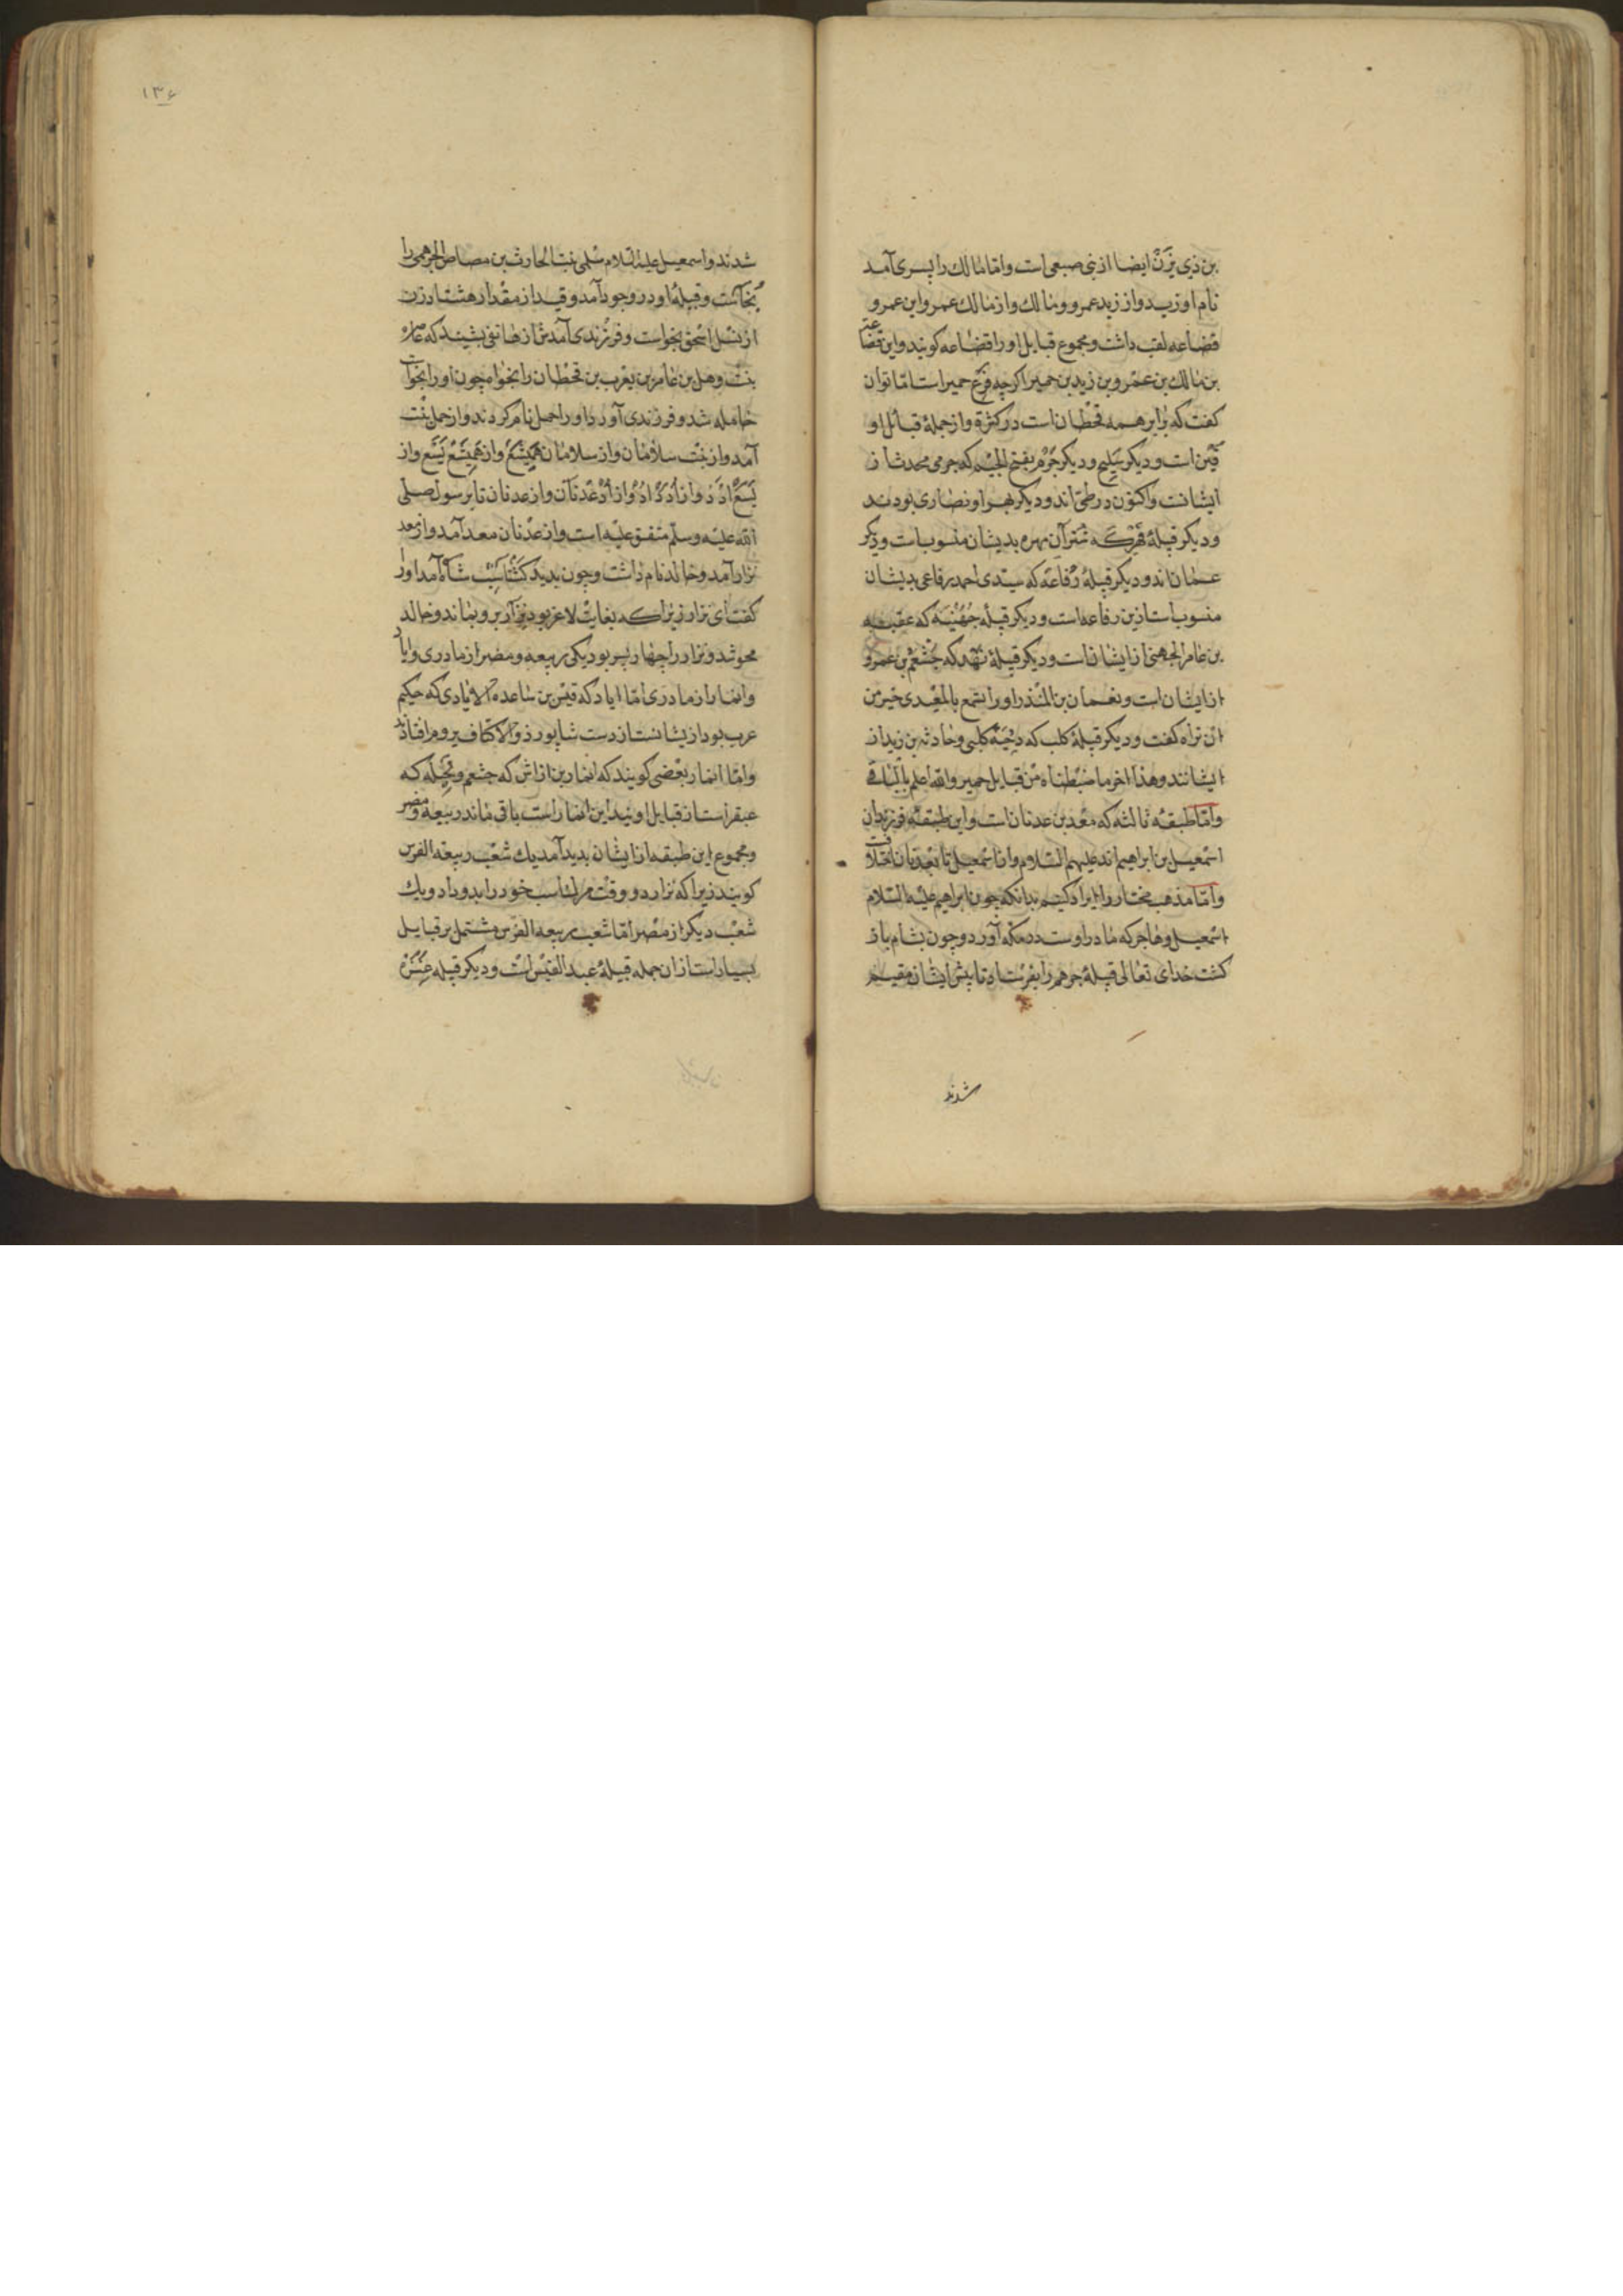 بن ذی یزن ایضا از بنی صبعی است واما مالک را پسری آمد
نام او زید و از زید عمرو و مالک و از مالک عمرو این عمرو
قضاعه لقب داشت و مجموع قبایل او را قضاعه کویند و این قضاعة
بن مالک بن عمرو بن زید بن حمیر اکرچه فرع حمیر است اما توان
کفت که برابر همه قحطان است در کثرة و از جملهٔ قبائل او
قین است و دیکر سلیح و دیکر جرم بفتح الجیم که جرمی محدث از
ایشانت و اکنون در طی اند و دیکر بهرا و نصاری بودند
و دیکر قبیلهٔ که شتران مهره بدیشان منسوبات و دیکر
عمان اند و دیکر قبیلهٔ رفاعه که سیدی احمد رفاعی بدیشان
منسوب است ازین رفاعه است و دیکر قبیلهٔ جهنیه که عقبه
بن عامر الجهنی از ایشان است و دیکر قبیلهٔ نهد که خثعم بن عمرو
از ایشان است و نعمان بن المنذر او را تسمع بالمعیدی خیر من
ان تراه کفت و دیکر قبیلهٔ کلب که دحیهٔ کلبی و حارثه بن زید از
ایشانند و هذا اخر ما ضبطناه من قبایل حمیر والله اعلم بالباقی
واما طبقهٔ ثالثه که معد بن عدنان است و این طبقه فرزندان
اسمعیل بن ابراهیم اند علیهم السلام و از اسمعیل تا بعدنان اختلافست
واما مذهب مختار را ایراد کنیم بدانکه چون ابراهیم علیه السلام
اسمعیل و هاجر که مادر اوست در مکه آورد و چون بشام باز
کشت خدای تعالی قبیلهٔ جرهم را بفرستاد تا پیش ایشان مقیم
شدند
۱۳۶
شدند و اسمعیل علیه السلام سلمی بنت الحارث بن مضاض الجرهمی را
بخواست و قبیلهٔ او در وجود آمد و قیدار مقدار هشتاد زن
از نسل اسحق بخواست و فرزندی آمدش از هاتفی بشنید که عاره
بنت وهل بن عامر بن یعرب بن قحطان را بخواه چون او را بخواست
حامله شد و فرزندی آورد او را حمل نام کردند و از حمل بنت
آمد و از بنت سلامان و از سلامان همیسع و از همیسع یسع و از
یسع ادد و از ادد اد و از اد عدنان و از عدنان تا برسول صلی
الله علیه وسلم متفق علیه است و از عدنان معد آمد و از معد
نزار آمد و خالد نام داشت و چون بدید کشتاسب شاه آمد او را
کفت ای نزار زیرا که بغایت لاغر بود نزار برو بماند و خالد
محو شد و نزار را چهار پسر بود یکی ربیعه و مضر از مادری و ایاد
و انمار از مادری اما ایاد که قیس بن ساعده الایادی که حکیم
عرب بود ازیشانست از دست شاپور ذو الاکتاف بروم افتادند
واما انمار بعضی کویند که انمار بن اراش که خثعم و بجیله که
عبقر است از قبایل اویند این انمار است باقی ماند ربیعه و مضر
و مجموع این طبقه از ایشان پدید آمد یک شعب ربیعة الفرس
کویند زیرا که نزار در وقت مرک اسب خود را بدو داد و یک
شعب دیکر از مضر اما شعب ربیعة الفرس مشتمل بر قبایل
بسیار است از ان جمله قبیلهٔ عبد القیس است و دیکر قبیلهٔ عنزه